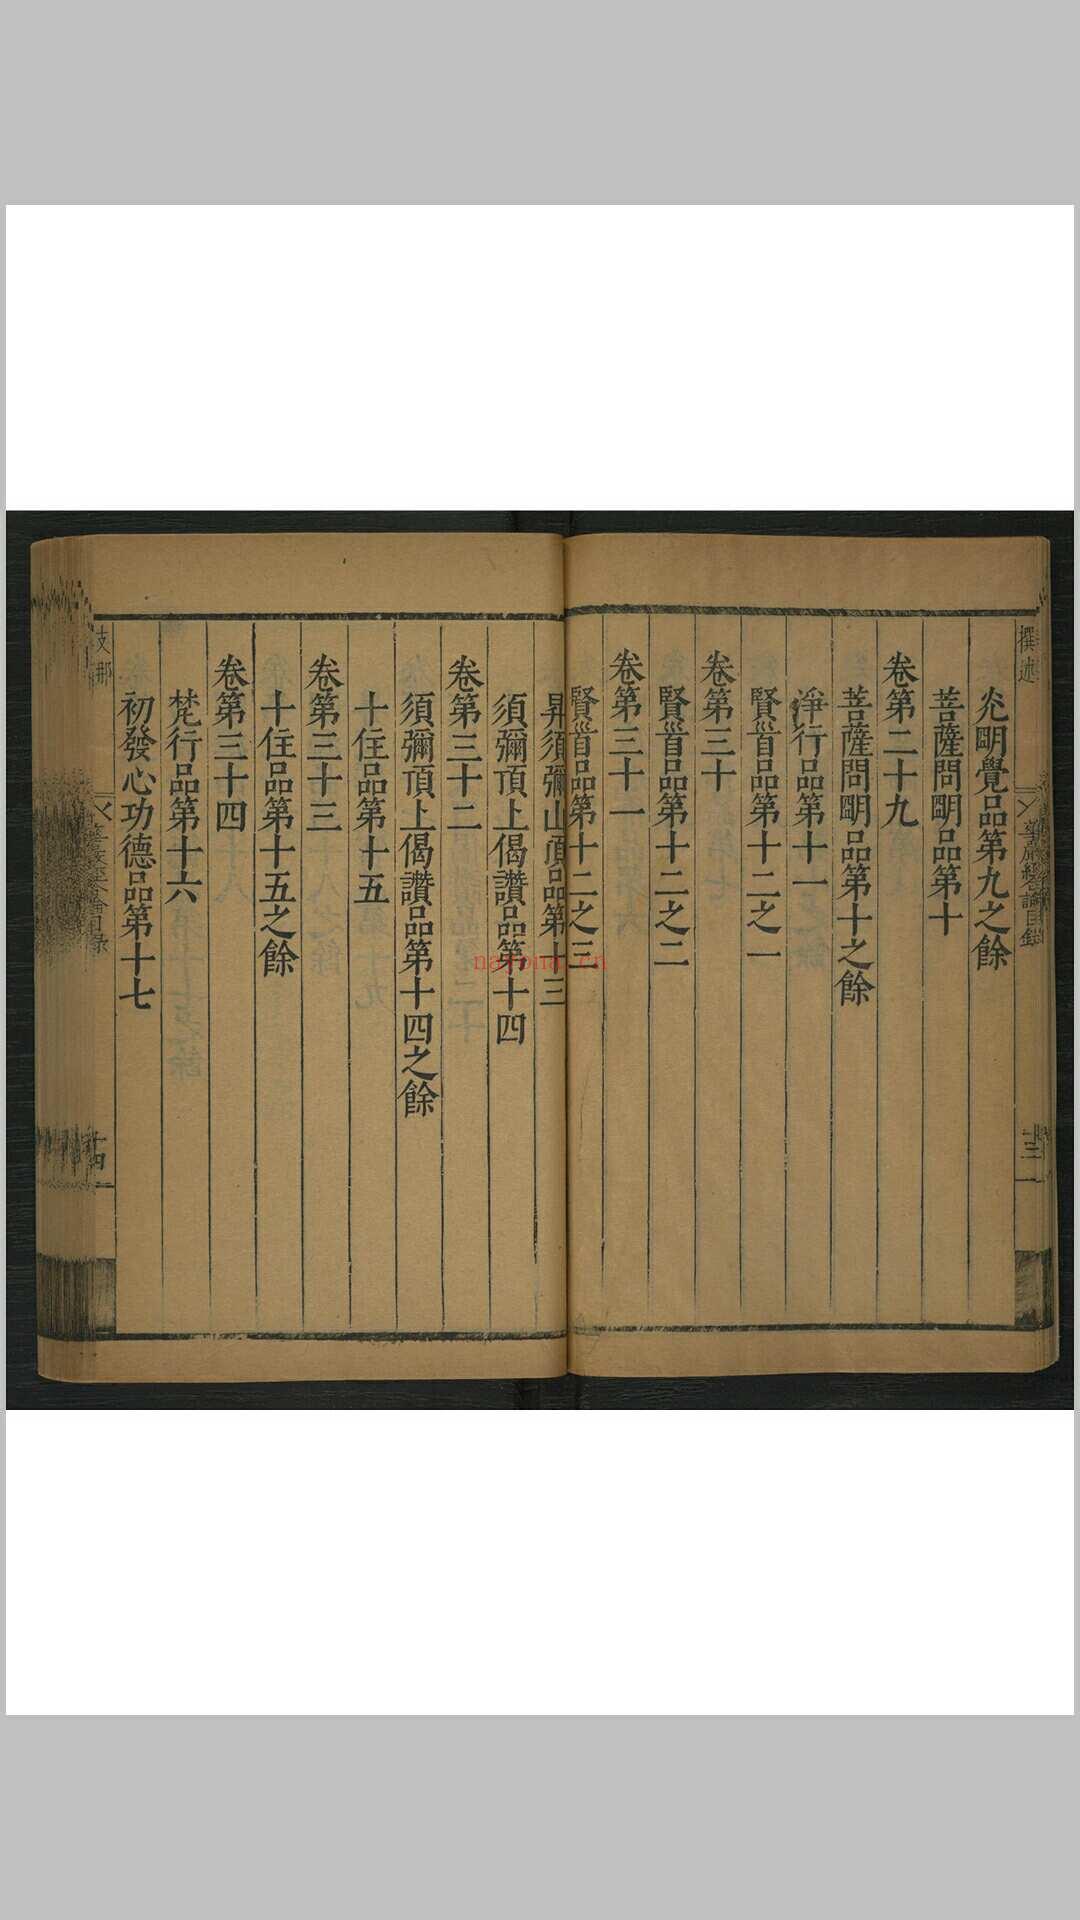 撰述
華嚴經合論目錄
十三
光明覺品第九之餘
菩薩問明品第十
卷第二十九
菩薩問明品第十之餘
淨行品第十一
賢首品第十二之一
卷第三十
賢首品第十二之二
卷第三十一
賢首品第十二之三
昇須彌山頂品第十三
須彌頂上偈讚品第十四
卷第三十二
須彌頂上偈讚品第十四之餘
十住品第十五
卷第三十三
十住品第十五之餘
卷第三十四
梵行品第十六
初發心功德品第十七
支那
十四
nayona.cn